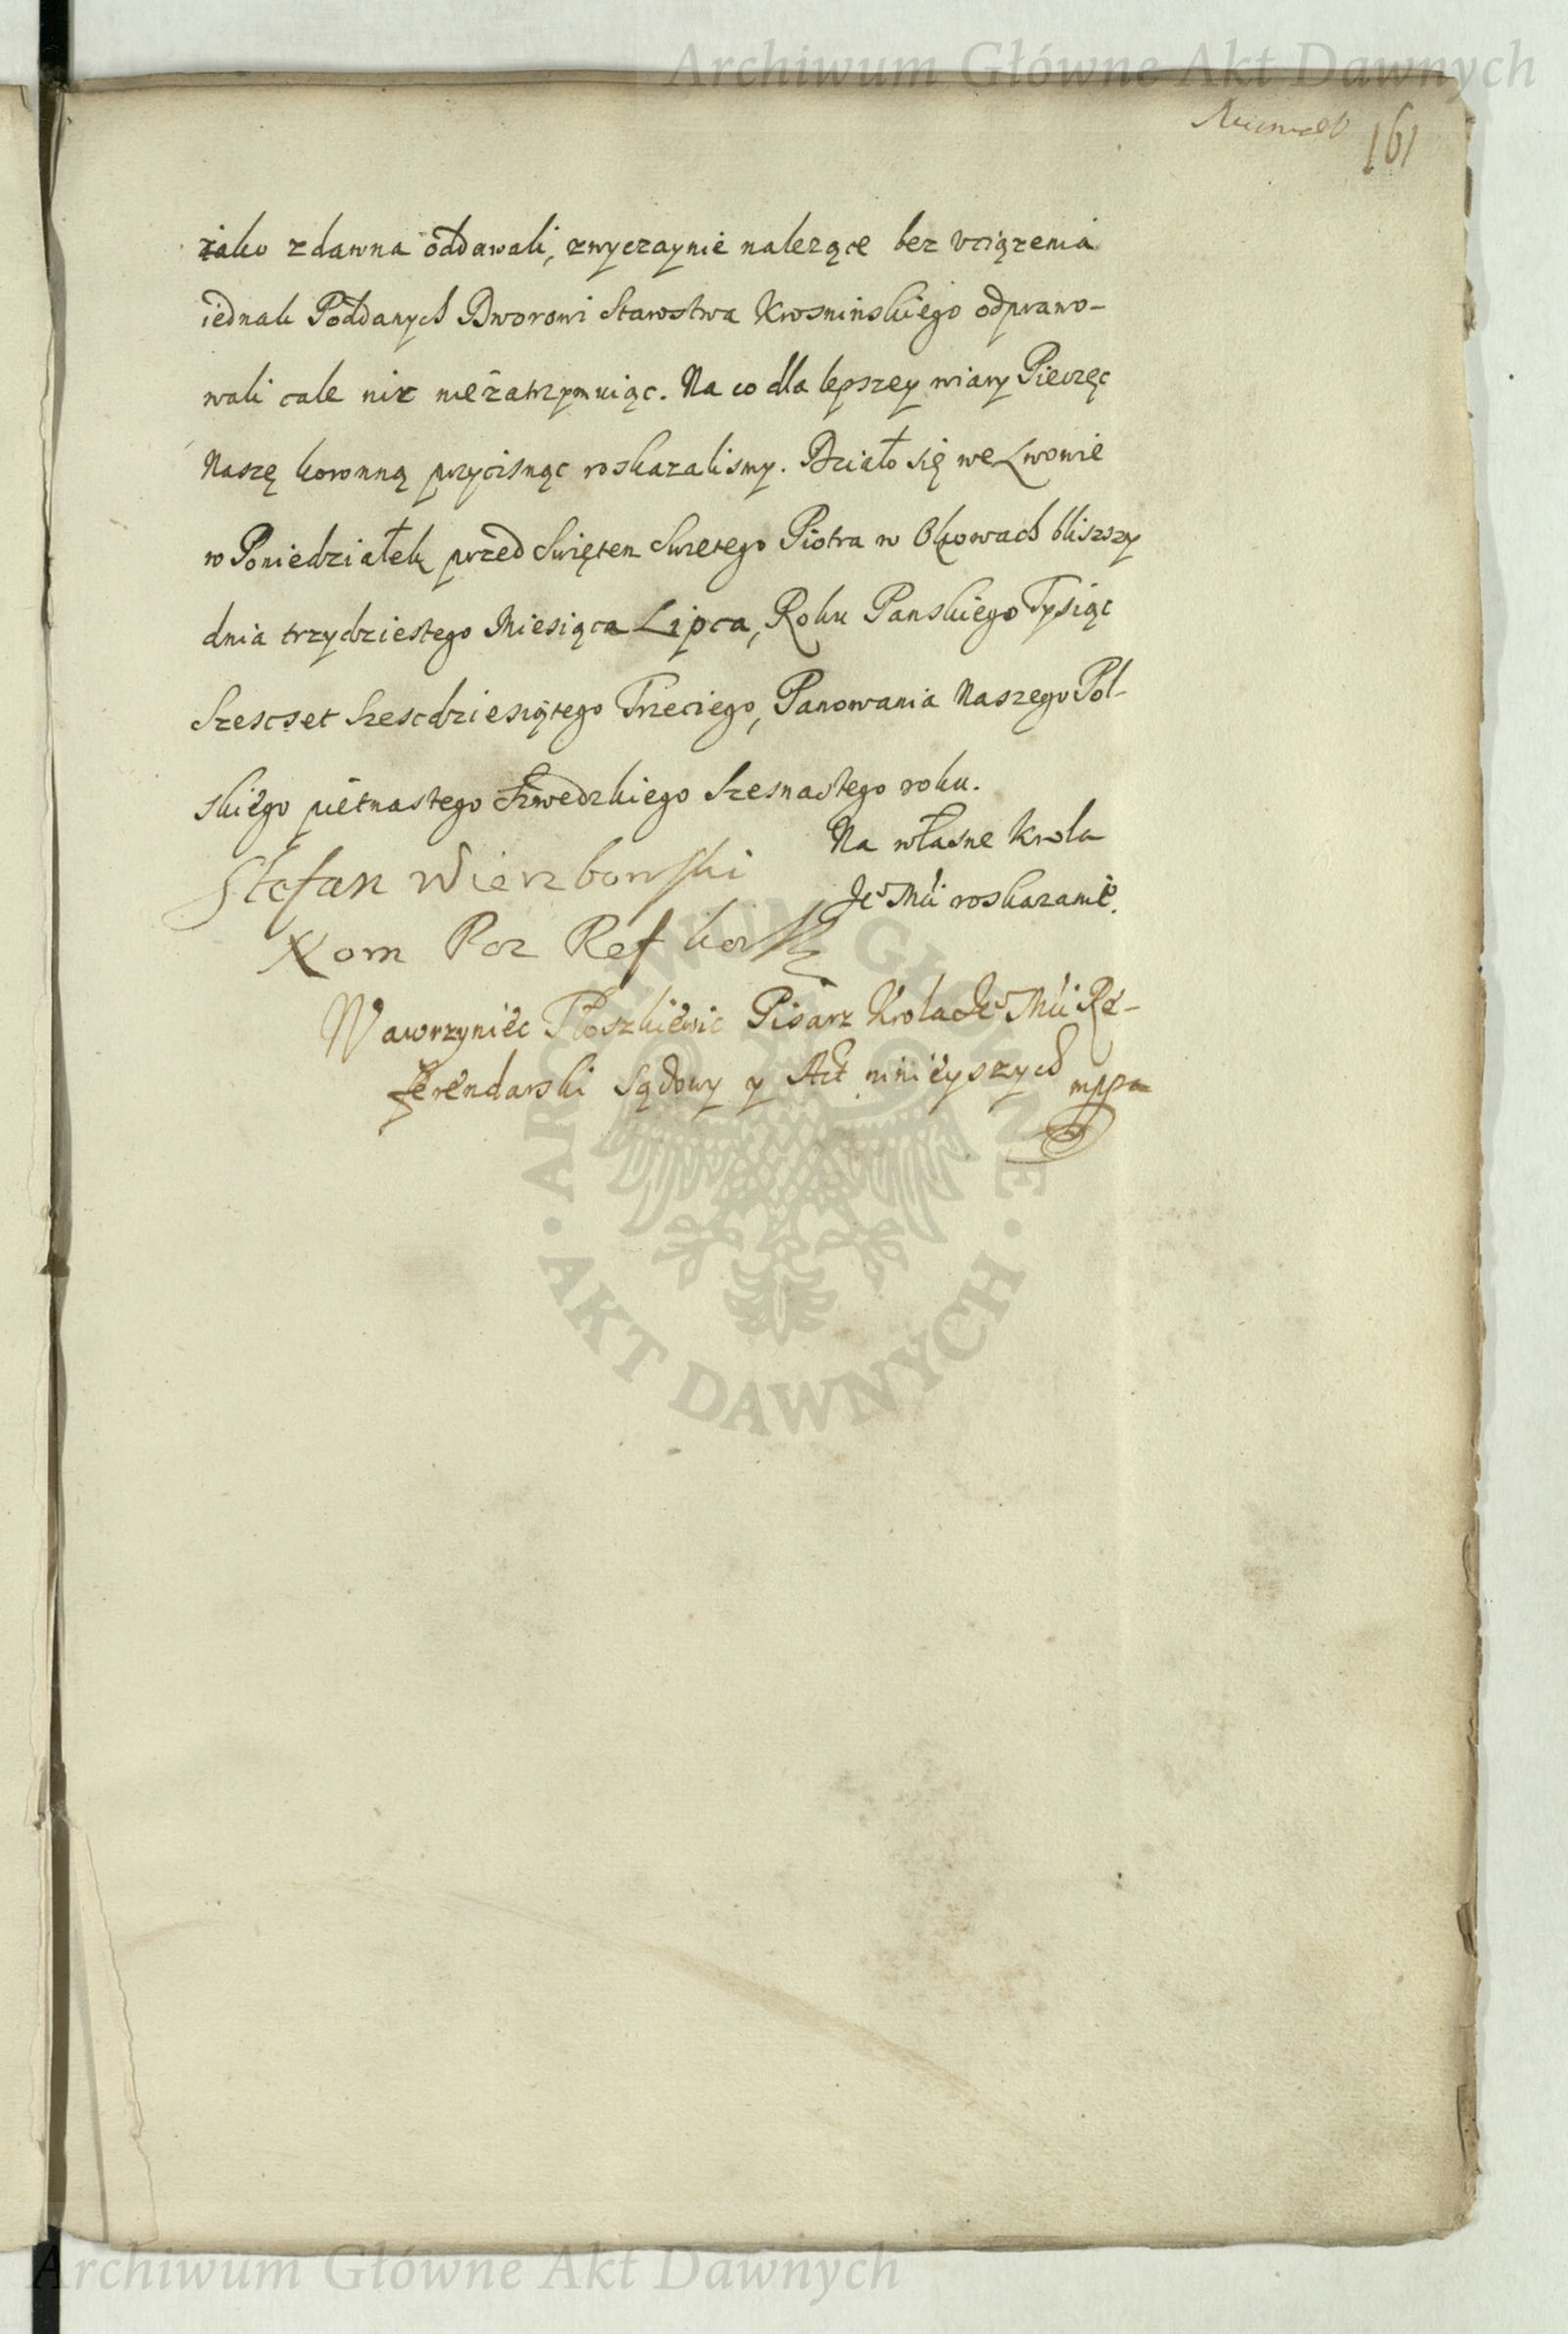 Archiwum Główne Akt Dawnych
161
iako zdawna oddawali, zwyczaynie nalezące bez vciązenia
iednak Poddanych Dworowi Starostwa Krosninskiego odprawo-
wali cale nic niezatrzymuiąc. Na co dla lepszey wiary Pieczęc
Naszę koronną przycisnąc roskazalismy. Działo się we Lwowie
w Poniedziałek przed Swięten Swietego Piotra w Okowach bliszszy
dnia trzydziestego Miesiąca Lipca, Roku Panskiego Tysiąc
Szescset Szescdziesiątego Trzeciego, Panowania Naszego Pol-
skiego pietnastego Szwedzkiego Szesnastego roku.
Na własne Krola
Je° Mći roskazanie.
Stefan Wierzbowski
Nom Poz Ref kor
Wawrzyniec Płoszkiewic Pisarz Krola Je° Mći Re-
ferendarski Sądowy y Akt ninieyszych mppa
ARCHIWUM GŁÓWNE
AKT DAWNYCH
Archiwum Główne Akt Dawnych